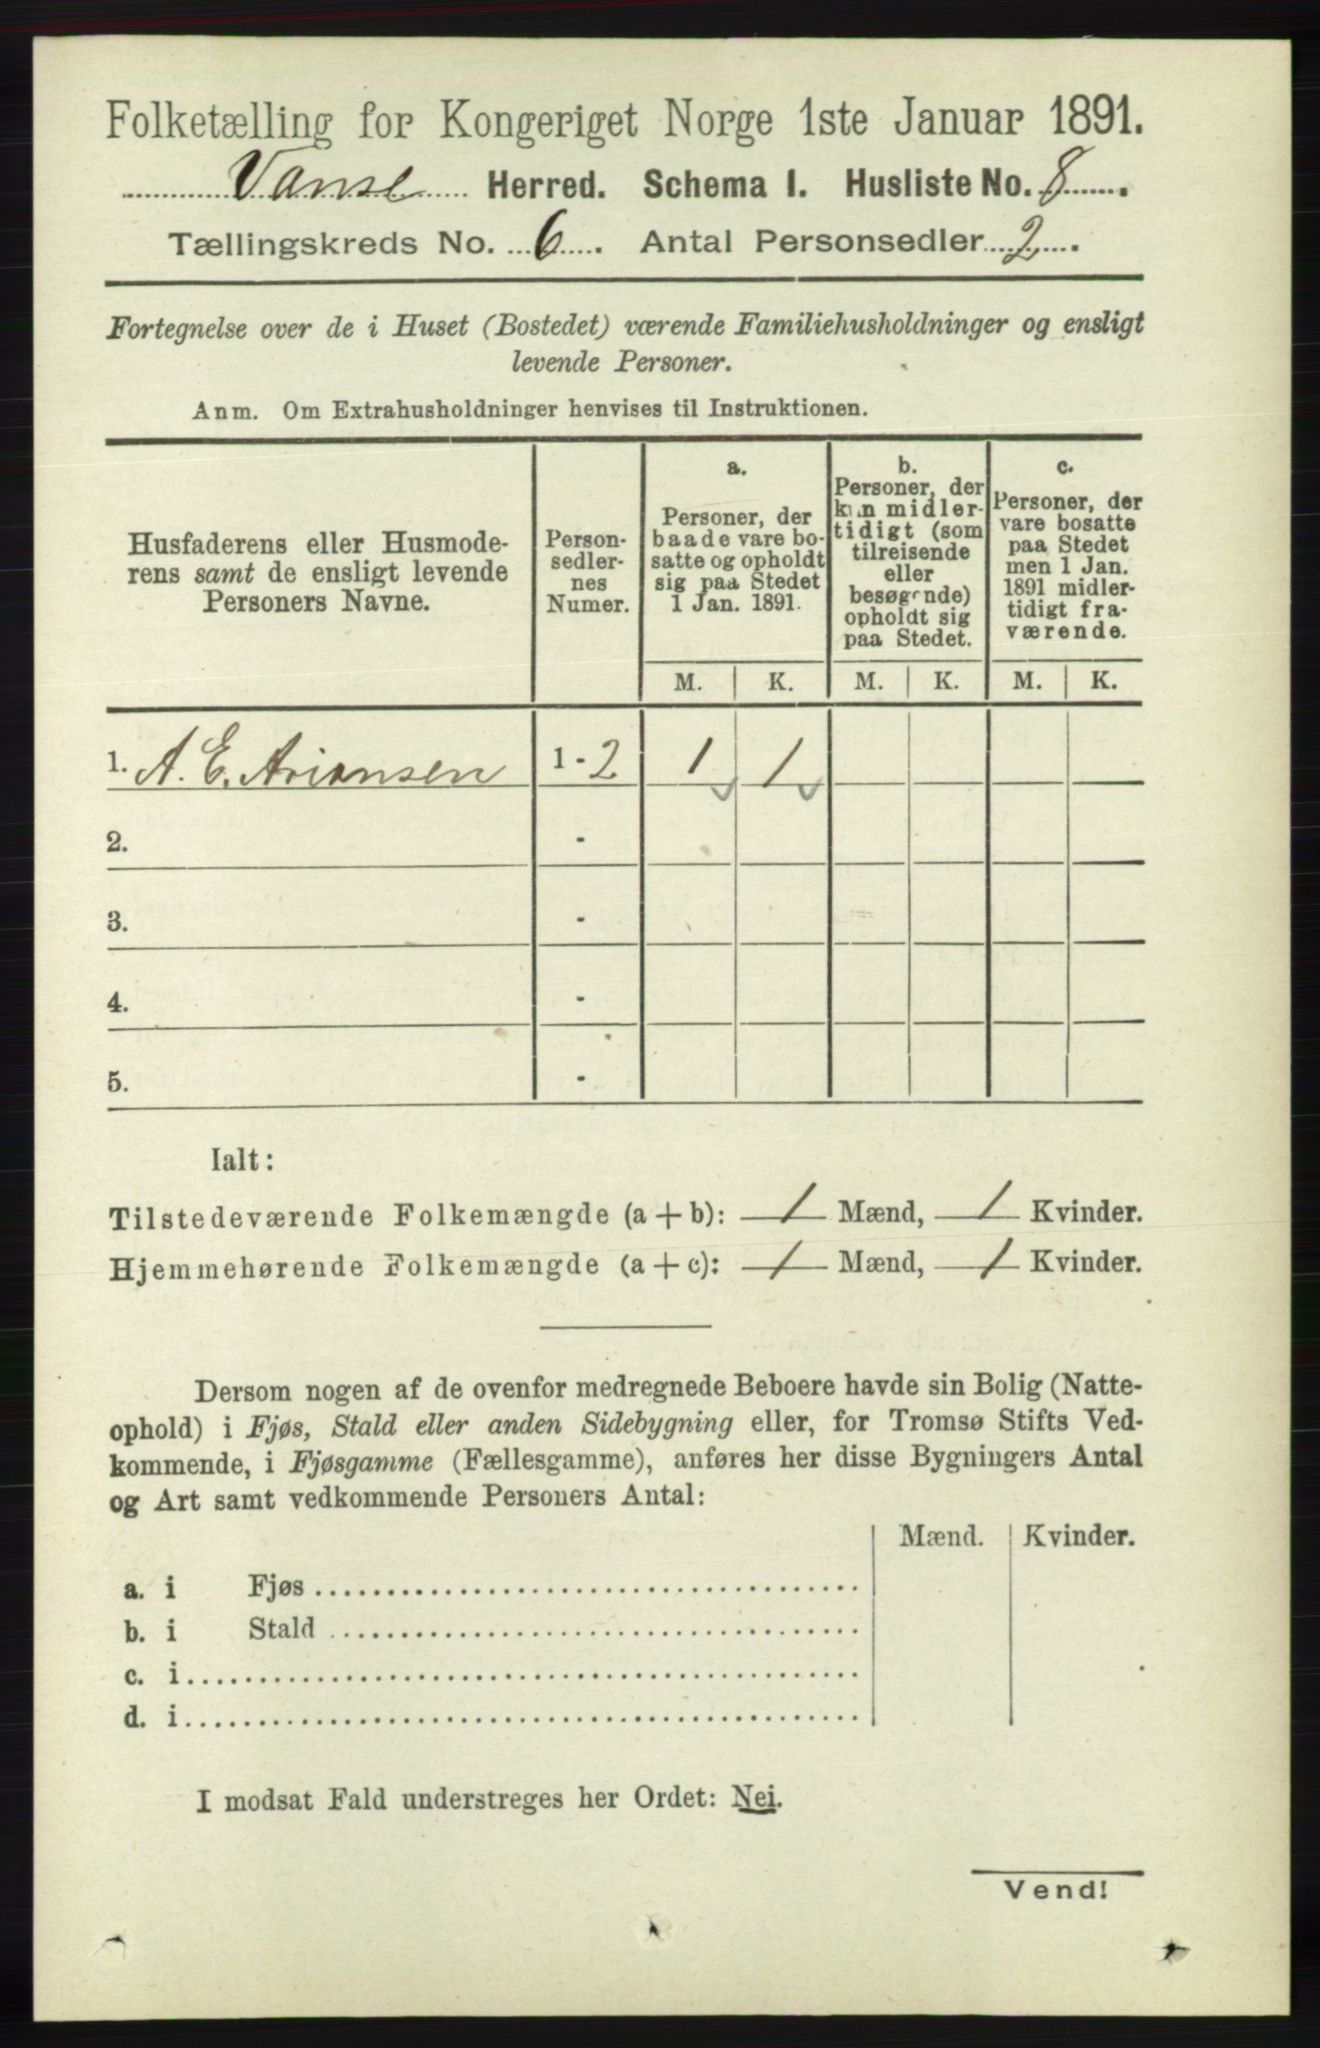 Folketælling for Kongeriget Norge 1ste Januar 1891.
Vanse Herred. Schema I. Husliste No. 8.
Tællingskreds No. 6. Antal Personsedler 2.
Fortegnelse over de i Huset (Bostedet) værende Familiehusholdninger og ensligt
levende Personer.
Anm. Om Extrahusholdninger henvises til Instruktionen.
Husfaderens eller Husmode-
rens samt de ensligt levende
Personers Navne.
Person-
sedler-
nes
Numer.
a.
Personer, der
baade vare bo-
satte og opholdt
sig paa Stedet
1 Jan. 1891.
b.
Personer, der
kun midler-
tidigt (som
tilreisende
eller
besøgende)
opholdt sig
paa Stedet.
c.
Personer, der
vare bosatte
paa Stedet
men 1 Jan.
1891 midler-
tidigt fra-
værende.
M. K. M. K. M. K.
1. A. E. Ariansen 1 - 2 1 1
2. -
3. -
4. -
5. -
Ialt:
Tilstedeværende Folkemængde (a + b): 1 Mænd, 1 Kvinder.
Hjemmehørende Folkemængde (a + c): 1 Mænd, 1 Kvinder.
Dersom nogen af de ovenfor medregnede Beboere havde sin Bolig (Natte-
ophold) i Fjøs, Stald eller anden Sidebygning eller, for Tromsø Stifts Ved-
kommende, i Fjøsgamme (Fællesgamme), anføres her disse Bygningers Antal
og Art samt vedkommende Personers Antal:
Mænd. Kvinder.
a. i Fjøs
b. i Stald
c. i
d. i
I modsat Fald understreges her Ordet: Nei.
Vend!